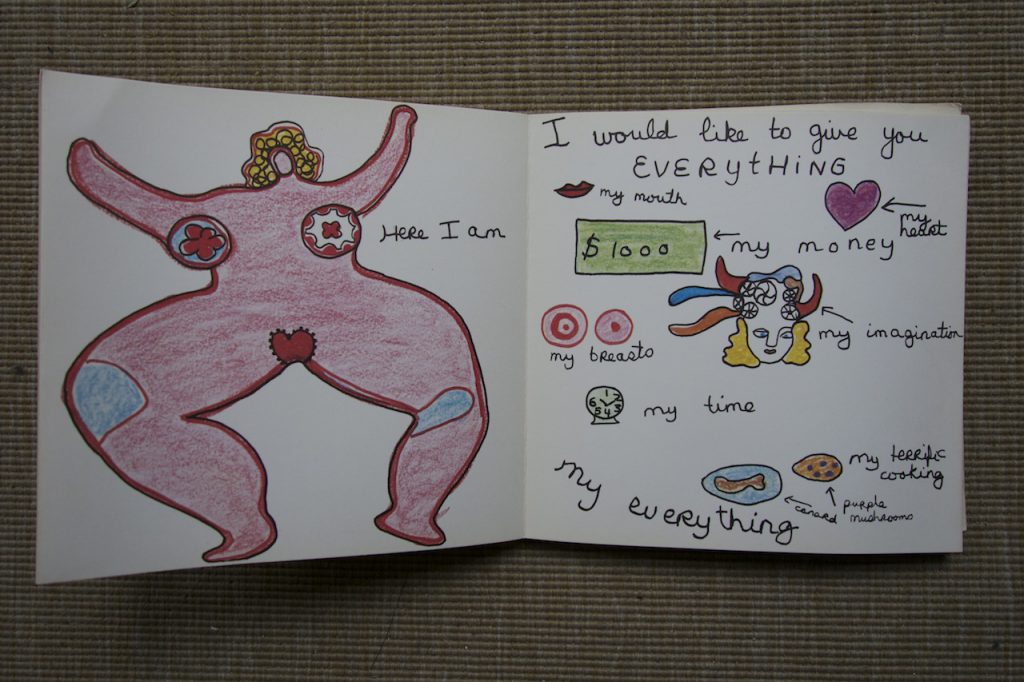 Here I am
I would like to give you
EVERYTHING
my mouth
my
heart
$1000
my money
my breasts
my imagination
my time
my terrific
cooking
canard
purple
mushrooms
My everything